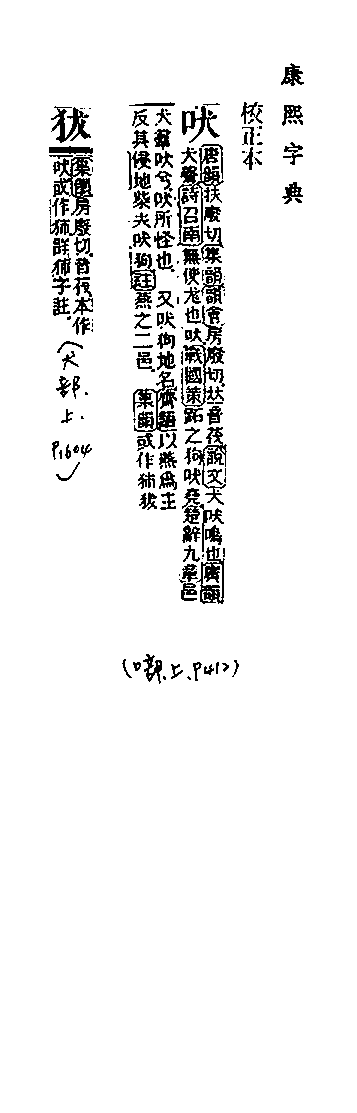 康熙字典
校正本
吠
唐韻扶廢切集韻韻會房廢切𠀤音茷說文犬吠鳴也廣韻
犬聲詩召南無使尨也吠戰國策跖之狗吠堯楚辭九章邑
犬羣吠兮吠所怪也 又吠狗地名齊語以燕爲主
反其侵地柴夫吠狗註燕之二邑 集韻或作㹃犮
(口部.上.P41)
㹃
集韻房廢切音茷本作
吠或作㹃詳㹃字註
(犬部.上.P1604)